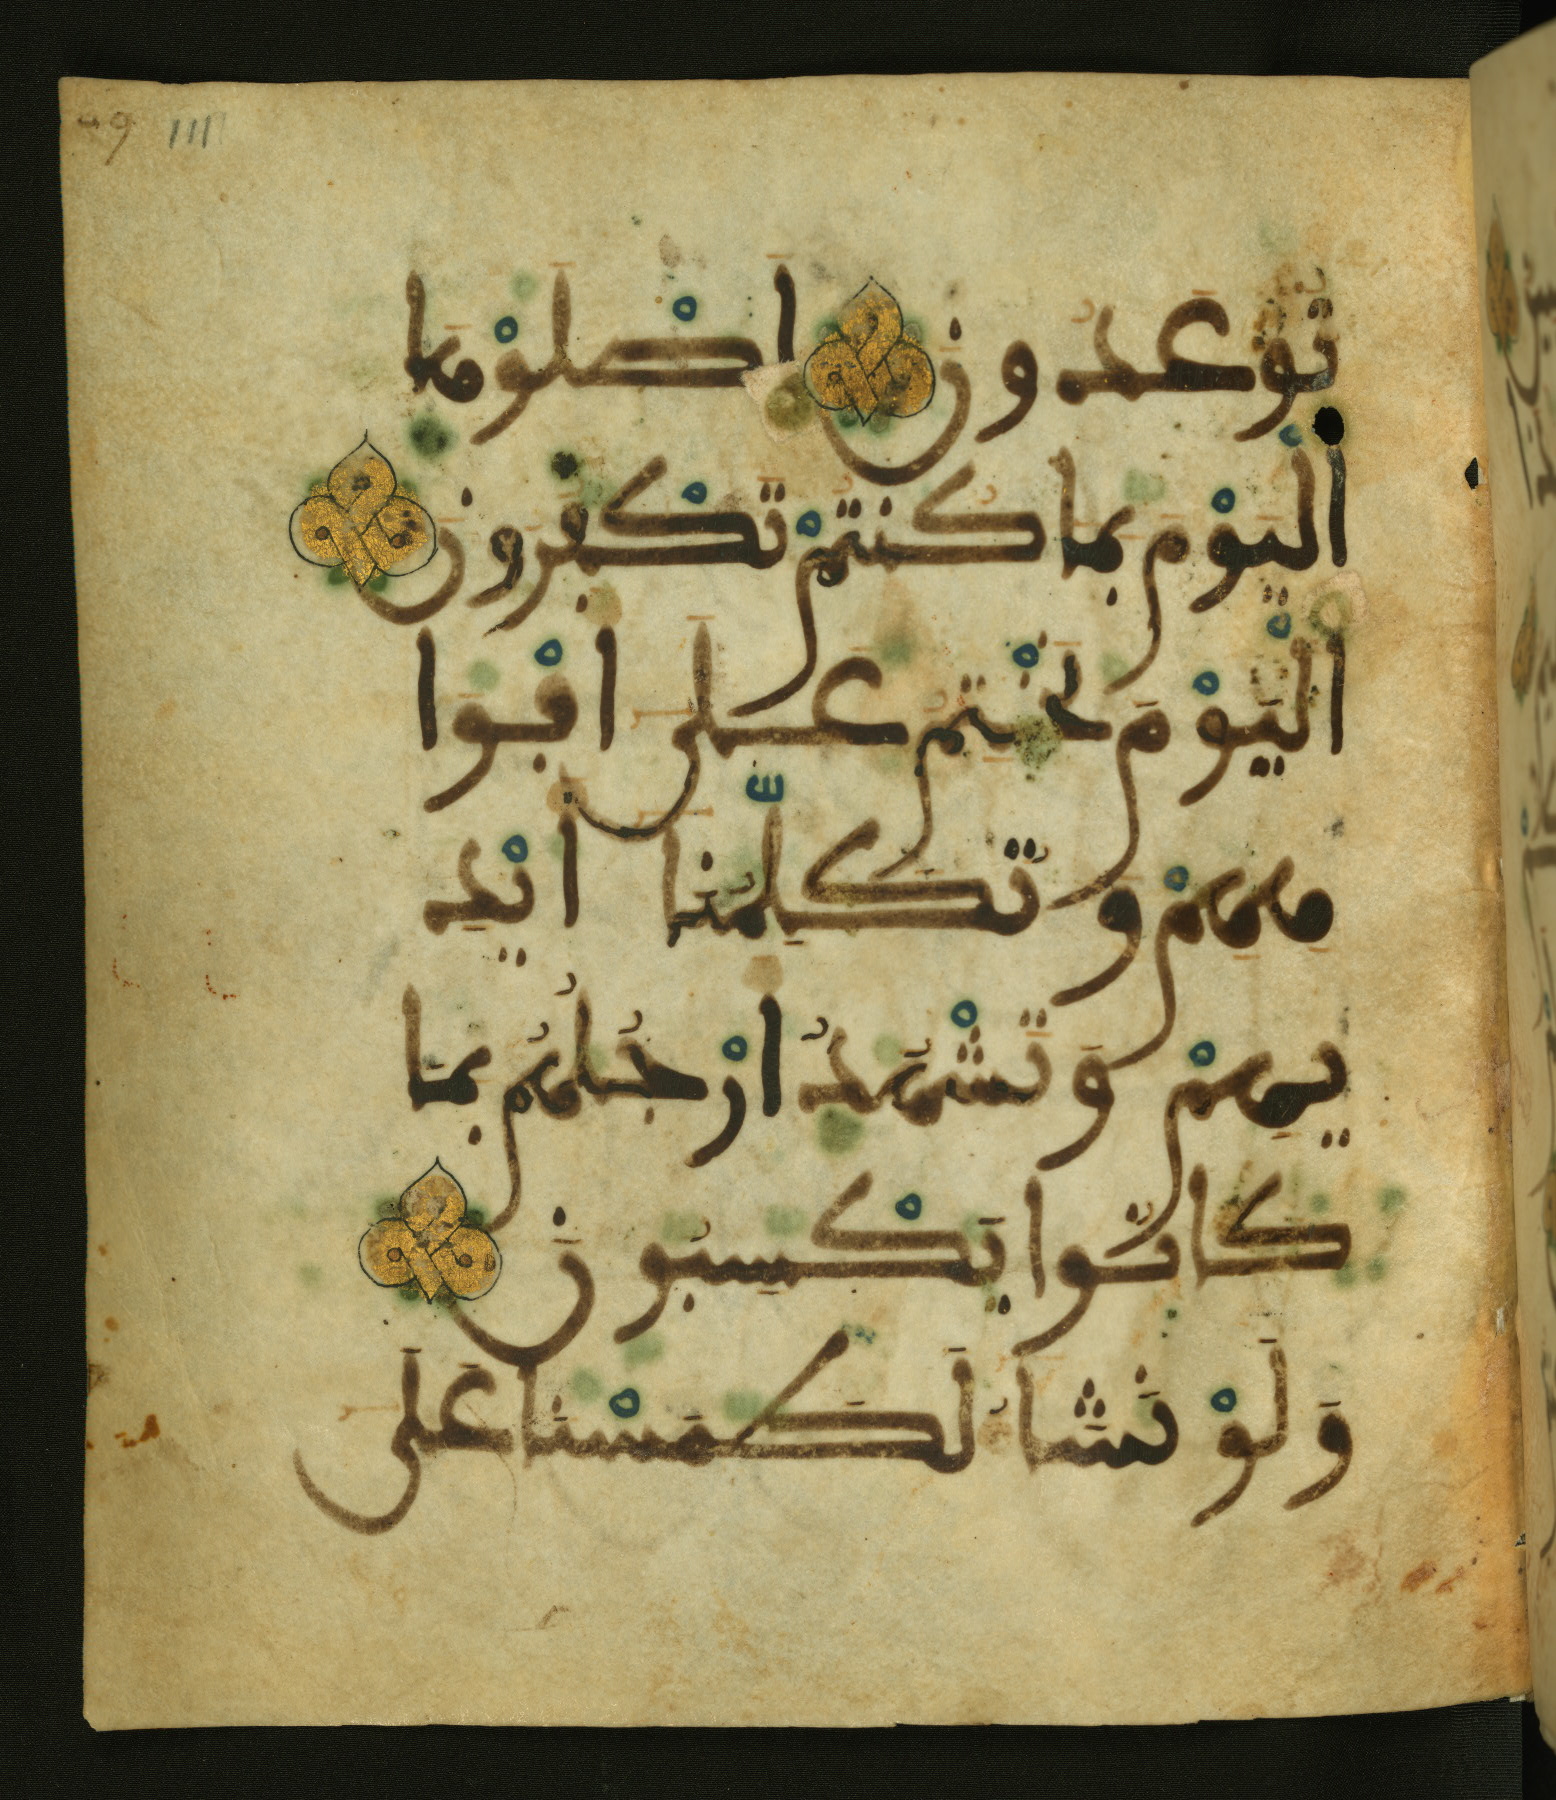 تُوعَدُونَ اَصْلَوْهَا
اَلْيَوْمَ بِمَا كُنتُمْ تَكْفُرُونَ
اَلْيَوْمَ نَخْتِمُ عَلَىٰ أَفْوَا
هِهِمْ وَتُكَلِّمُنَا أَيْدِ
يهِمْ وَتَشْهَدُ أَرْجُلُهُم بِمَا
كَانُوا يَكْسِبُونَ
وَلَوْ نَشَاءُ لَطَمَسْنَا عَلَىٰ